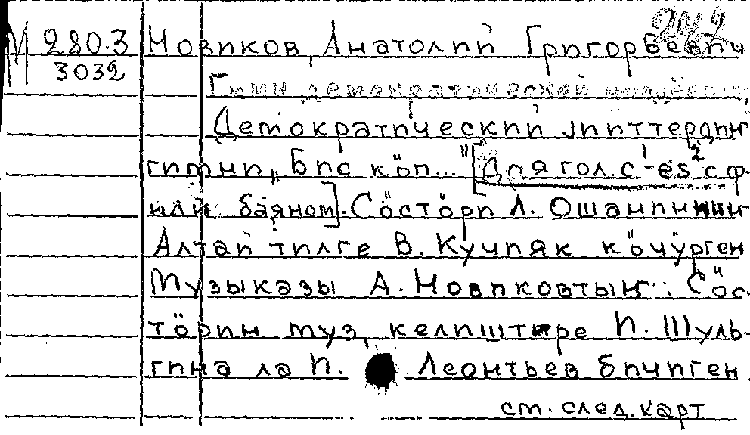 М 280.3 Новиков, Анатолий Григорьевич
3032
Гимн демократической
Демократический јииттердиҥ
гимни, Бис кӧп..." [Для гол. с¹-es² с ф
или баяном]. Сӧстӧри Л. Ошанин
Алтай тилге В. Кучияк кӧчӱрген
Музыказы А. Новиковтыҥ. Сӧс-
тӧрин муз. келиштире И. Шуль-
гина ла И. Леонтьев бичиген.
см. след. карт